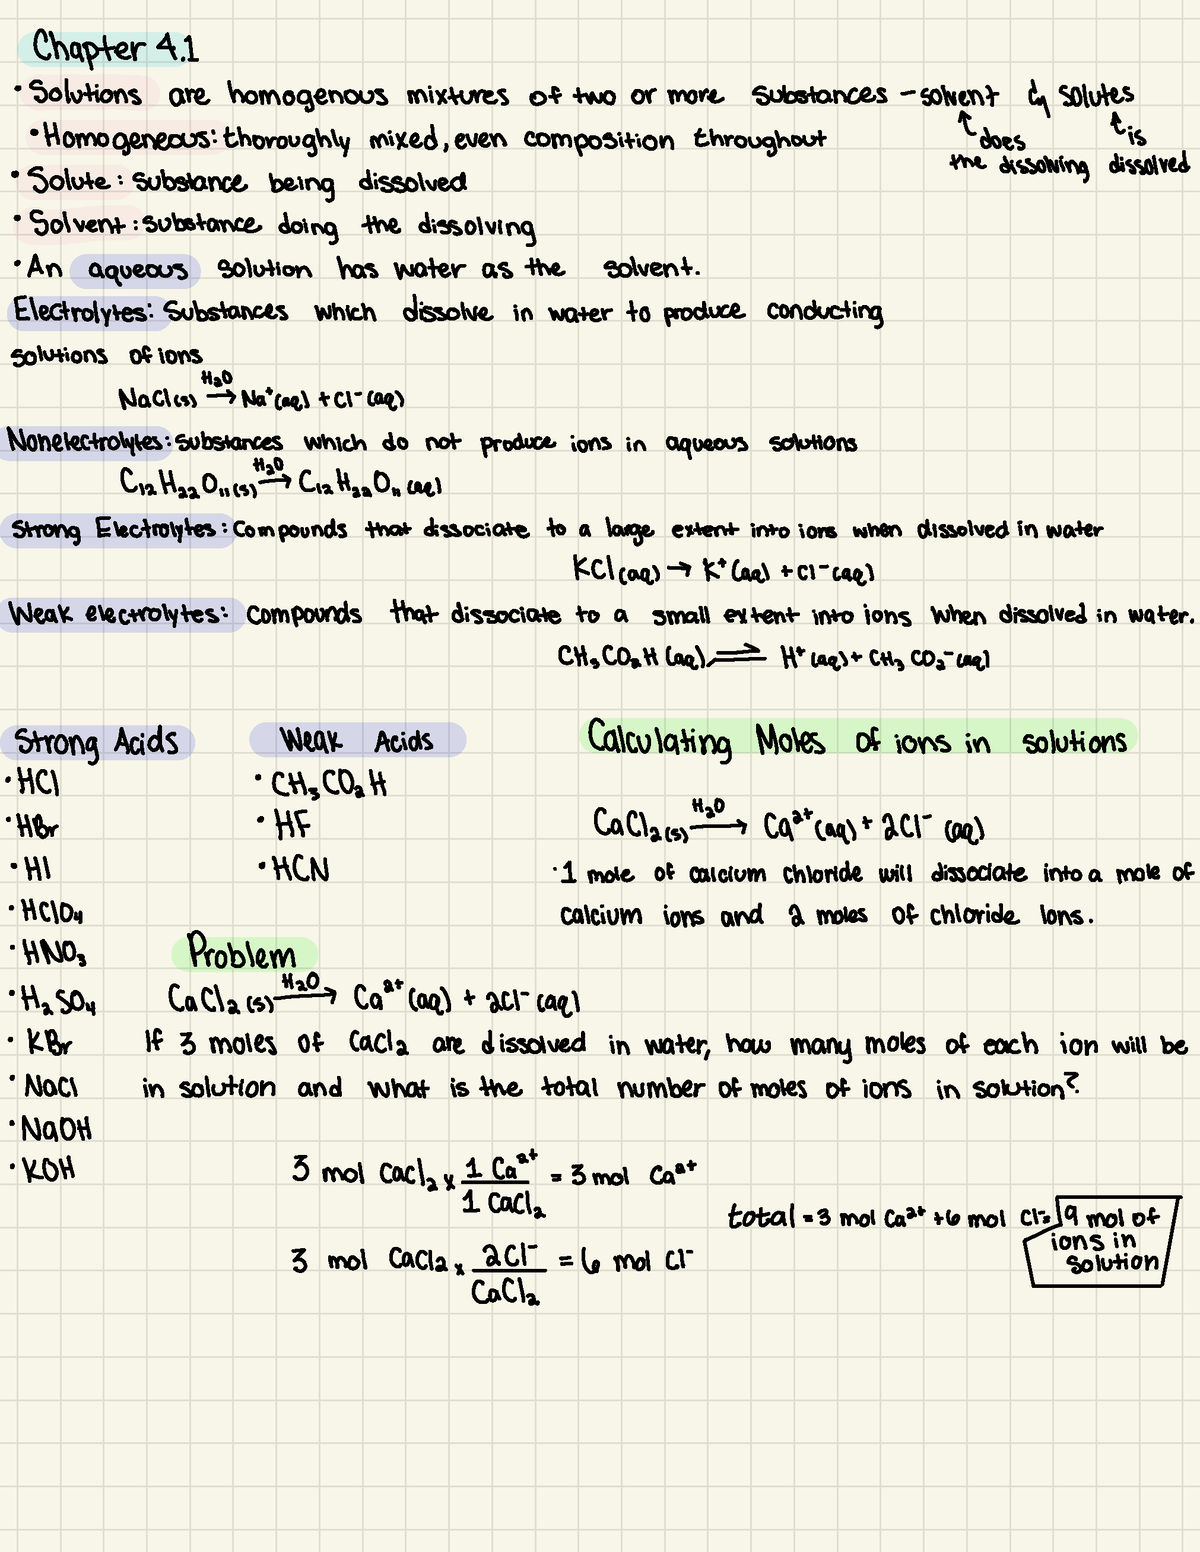 Chapter 4.1
• Solutions are homogenous mixtures of two or more substances - solvent & solutes
↑ does the dissolving
↑ is dissolved
• Homogeneous: thoroughly mixed, even composition throughout
• Solute: substance being dissolved
• Solvent: substance doing the dissolving
• An aqueous solution has water as the solvent.
Electrolytes: Substances which dissolve in water to produce conducting
solutions of ions
NaCl(s) →[H₂O] Na⁺(aq) + Cl⁻(aq)
Nonelectrolytes: substances which do not produce ions in aqueous solutions
C₁₂H₂₂O₁₁(s) →[H₂O] C₁₂H₂₂O₁₁(aq)
Strong Electrolytes: Compounds that dissociate to a large extent into ions when dissolved in water
KCl(aq) → K⁺(aq) + Cl⁻(aq)
Weak electrolytes: Compounds that dissociate to a small extent into ions when dissolved in water.
CH₃CO₂H(aq) ⇌ H⁺(aq) + CH₃CO₂⁻(aq)
Strong Acids
• HCl
• HBr
• HI
• HClO₄
• HNO₃
• H₂SO₄
• KBr
• NaCl
• NaOH
• KOH
Weak Acids
• CH₃CO₂H
• HF
• HCN
Calculating Moles of ions in solutions
CaCl₂(s) →[H₂O] Ca²⁺(aq) + 2Cl⁻(aq)
• 1 mole of calcium chloride will dissociate into a mole of
calcium ions and 2 moles of chloride ions.
Problem
CaCl₂(s) →[H₂O] Ca²⁺(aq) + 2Cl⁻(aq)
If 3 moles of CaCl₂ are dissolved in water, how many moles of each ion will be
in solution and what is the total number of moles of ions in solution?
3 mol CaCl₂ x 1 Ca²⁺ / 1 CaCl₂ = 3 mol Ca²⁺
3 mol CaCl₂ x 2Cl⁻ / CaCl₂ = 6 mol Cl⁻
total = 3 mol Ca²⁺ + 6 mol Cl⁻ = 9 mol of
ions in
solution